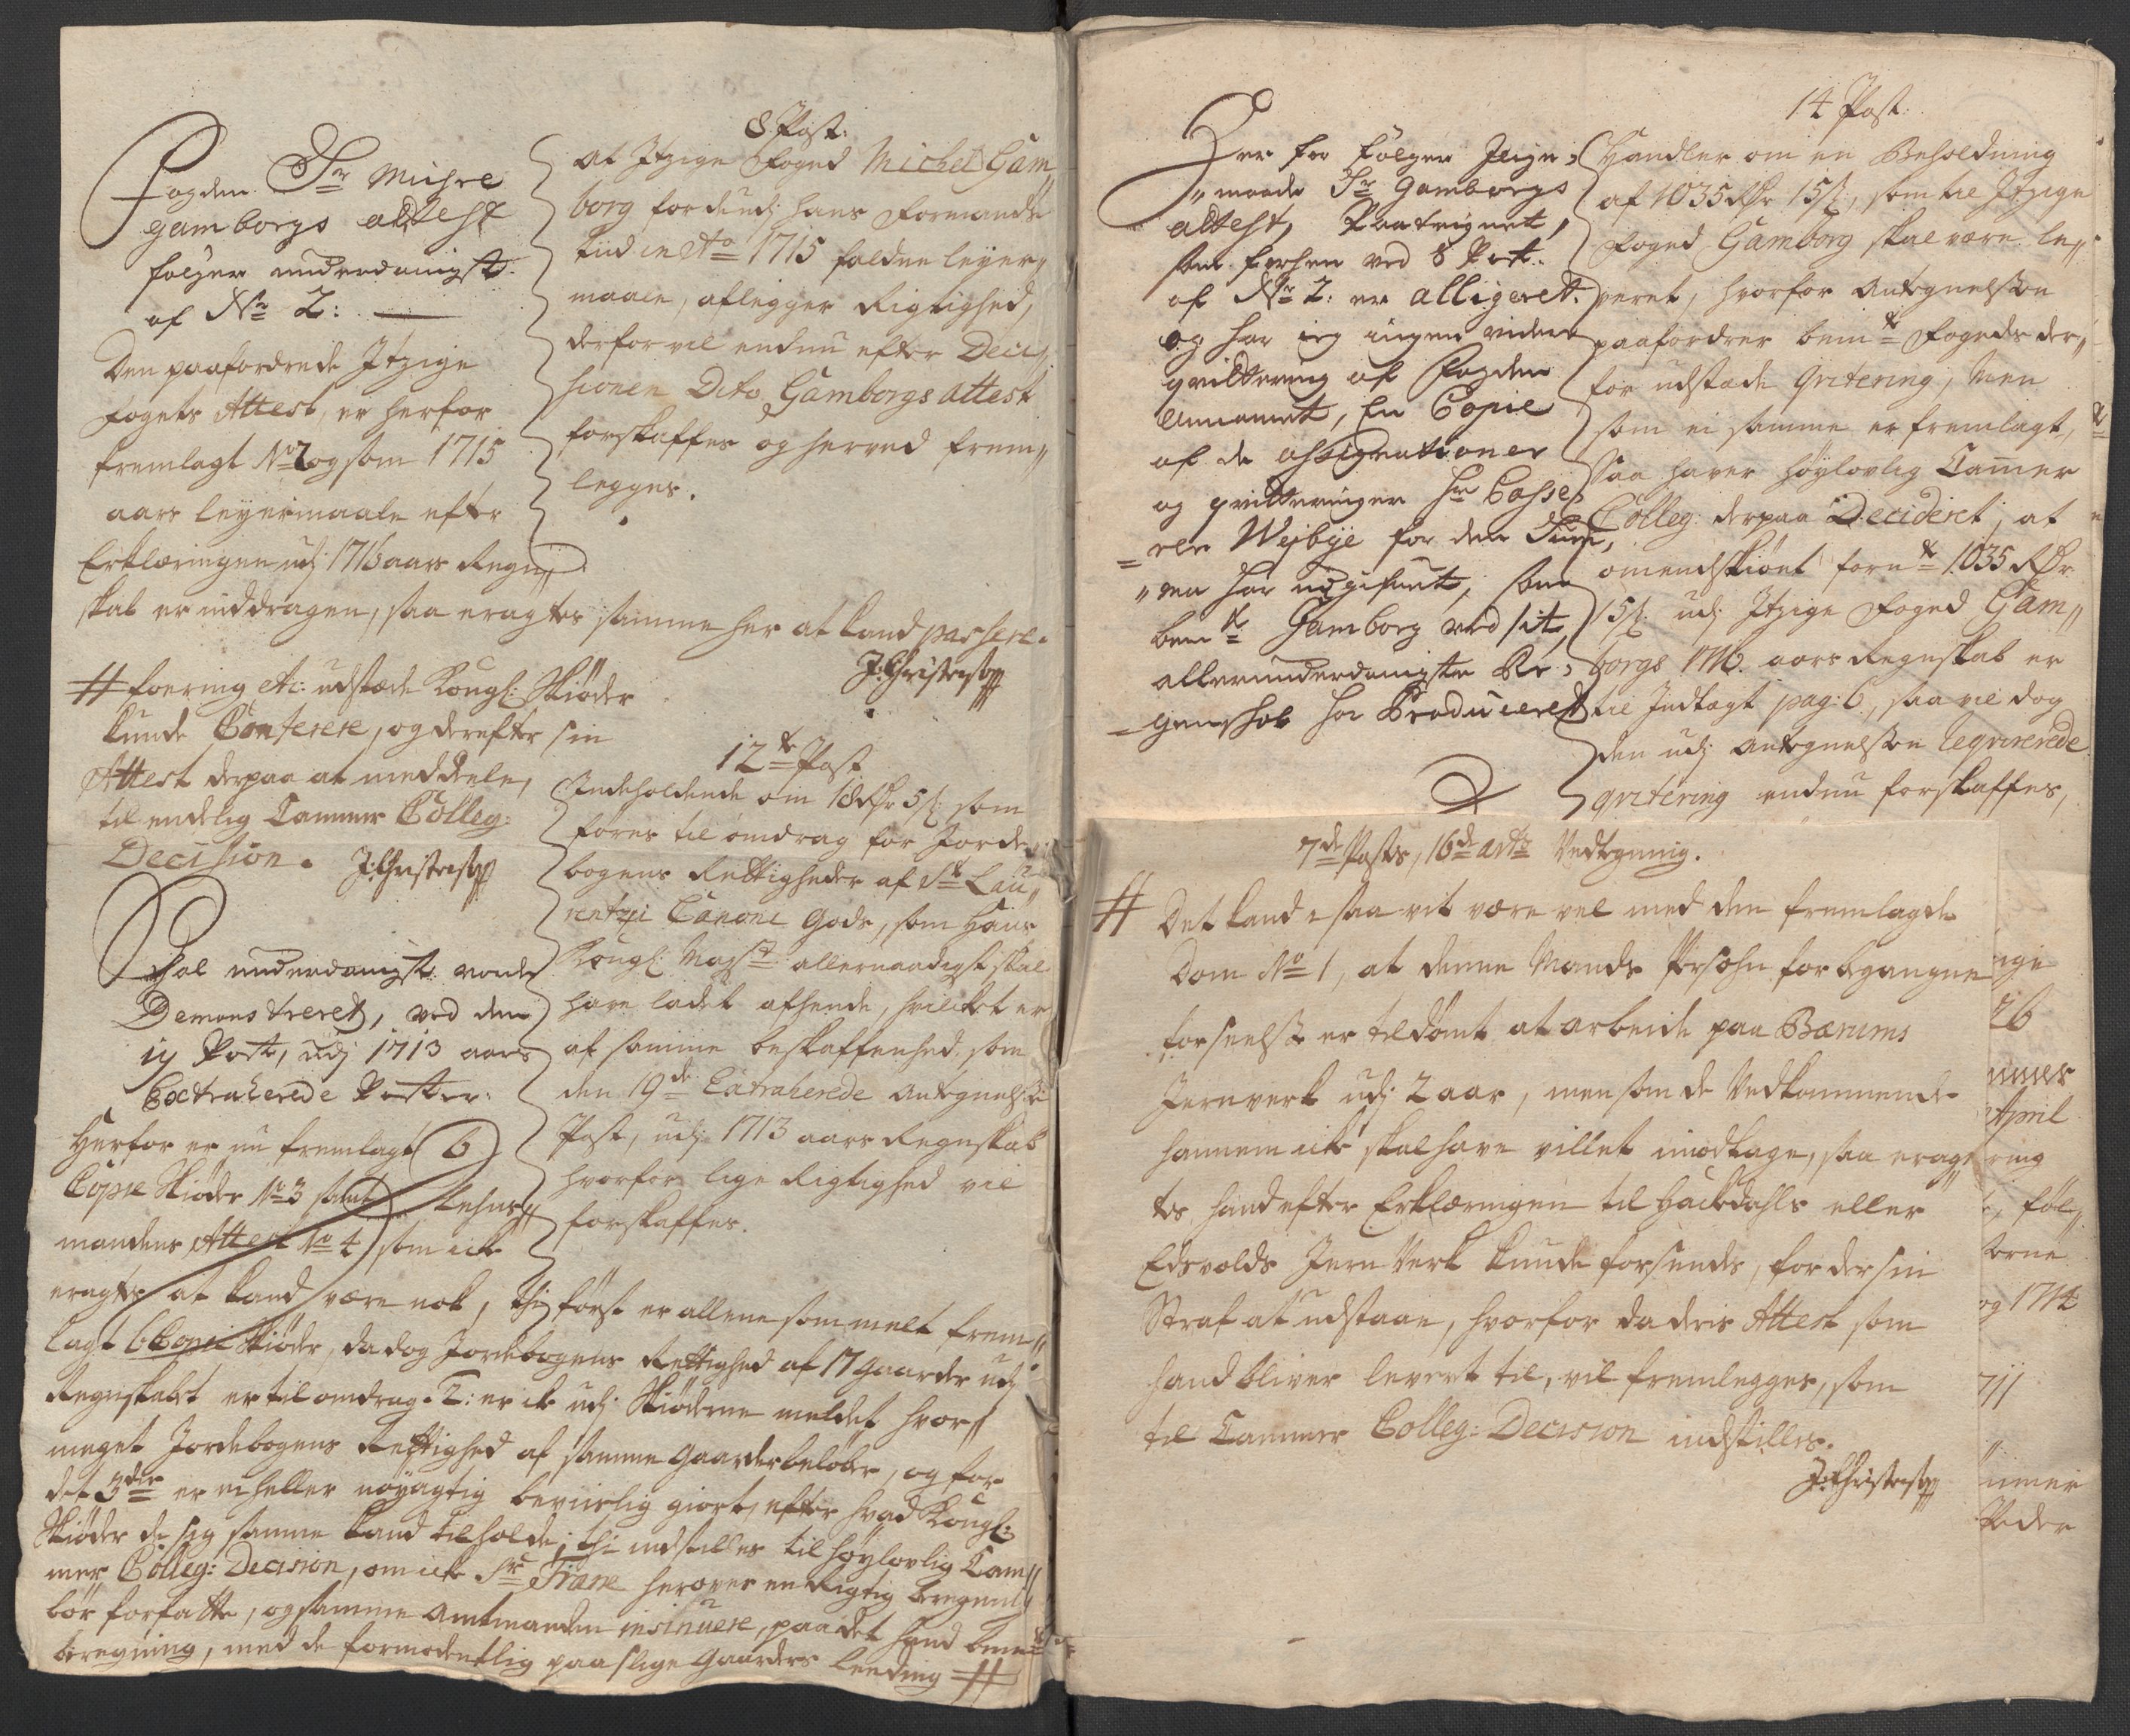 8 Post:
Fogden Sr Michel
Gamborgs attest
følger underdanigst.
af No 2:
Den paafordrede Itzige
Fogets Attest, er herfor
fremlagt No 2 og som 1715
aars leyermaale efter
Erklæringen udj 1716 aars Regn„
skab er inddragen, saa eragtes samme her at kand passere.
J:Christens
at Itzige Foged Michel Gam„
borg for de udj hans Formands
tiid in Ao 1715 faldne leyer„
maale, aflegger Rigtighed,
derfor vil endnu efter Deci„
sionen Dito Gamborgs attest
forskaffes og herved frem„
legges.
# foering etc: udstæde Kongl: Skiøder
kunde Conferere, og derefter sin
Attest derpaa at meddele,
til endelig Cammer Colleg:
Decision. J:Christens
12te Post
Indeholdende om 18 Rdr 5 s: som
føres til omdrag for Jorde„
bogens Rettigheder af St Lau„
rentzii Canonie Gods, som Hans
Kongl: Mayst allernaadigst skal
have ladet afhende, hvilket er
af samme beskaffenhed, som
den 19de Extraherede Antegnelses
Post, udj 1713 aars Regnskab
hvorfor lige Rigtighed vil
forskaffes.
Skal underdanigst vorde
Demonstreret, ved den
19 Post, udj 1713 aars
Extraherede Poster:
Herfor er nu fremlagt 6
Copie Skiøder No 3 samt Lehns„
mandens Attest No 4 som icke
eragtes at kand være nok, thi først er allene som melt frem„
lagt 6 Copie Skiøder, da dog Jordebogens Rettighed af 17 Gaarder udj
Regnskabet er til omdrag. 2: er ick udj Skiøderne meldet hvor„
meget Jordebogens Rettighed af samme Gaarder beløber, og for
det 3die er ei heller nøyagtig beviislig giort, efter hvad Kongl:
Skiøder de sig samme kand tilholde; thi indstilles til høylovlig Cam„
mer Colleg: Decision, om icke Sr Trane herover en Rigtig beregning
bør forfatte, og samme Amtmanden insinuere, paa det hand bemte
beregning, med de formodentlig paa slige Gaarders leeding #
14 Post:
Her for følger lige„
„maade Sr Gamborgs
attest, Paategnet,
som forhen ved 8 Post.
af No 2: er alligeret.
og har ieg ingen videre
qvittering af Fogden
annamet, En Copie
af de assignationer
og qvitteringer Hr Casse„
=rer Wejbye for den Sum„
„ma har udgifuet, som
bemte Gamborg ved sit
allerunderdanigste Re„
=genskab har Produceret
Handler om en Beholdning
af 1035 Rdr 15 s:, som til Itzige
Foged Gamborg skal være le„
veret, hvorfor Antegnelsen
paafordrer bemte Fogeds der„
for udstæde Qvitering, Men
som ei samme er fremlagt,
Saa haver høylovlig Camer
Colleg: derpaa Decideret, at
omendskiønt fornte 1035 Rdr
15 s: udj Itzige Foged Gam„
borgs 1716. aars Regnskab er
til Indtægt pag: 6, saa vil dog
den udj Antegnelsen reqvirerede
qvitering endnu forskaffes,
7de Posts, 16de arts Vedtegning.
# Det kand saa vit være vel med den fremlagde
Dom No 1, at denne Mands Persohn for begangne
forseelse er tildømt at arbeide paa Bærums
Jernverk udj 2 aar, men som de Vedkommende
hannem icke skal have villet imodtage, saa erag„
tes hand efter Erklæringen til Hackedahls eller
Edsvolds Jern Verk kunde forsendes, for der sin
Straf at udstaae, hvorfor da deris Attest som
hand bliver levert til, vil fremlegges, som
til Cammer Colleg: Decision indstilles.
J:Christens
26
April
ring
føl„
og 1714
711